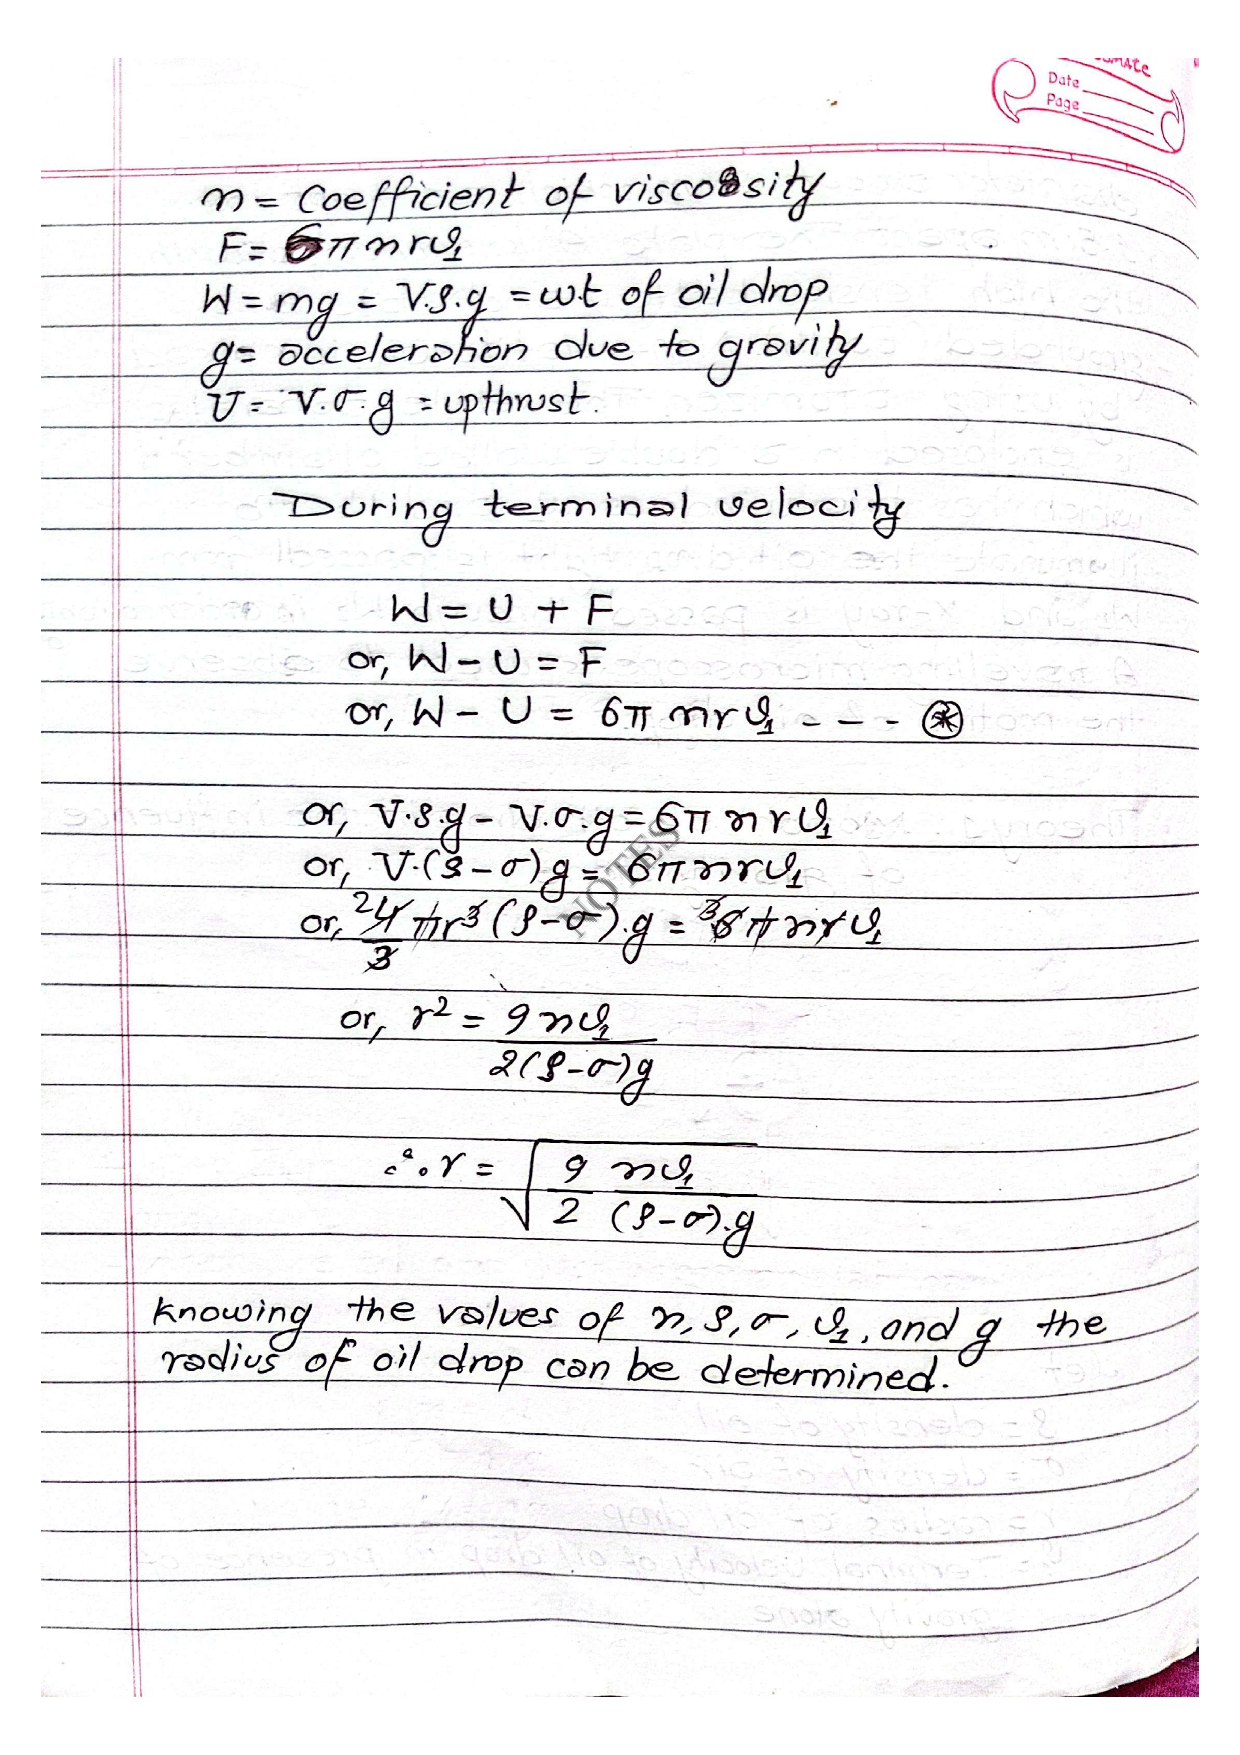 Date
Page
η = Coefficient of viscosity
F = 6πηrϑ₁
W = mg = V.ρ.g = wt of oil drop
g = acceleration due to gravity
U = V.σ.g = upthrust.
During terminal velocity
W = U + F
or, W - U = F
or, W - U = 6πηrϑ₁ - - - ⊛
or, V.ρ.g - V.σ.g = 6πηrϑ₁
or, V.(ρ-σ)g = 6πηrϑ₁
NOTES
or, ²4/3 πr³ (ρ-σ).g = ³6πηrϑ₁
or, r² = 9ηϑ₁ / 2(ρ-σ)g
∴ r = √(9/2 ηϑ₁/(ρ-σ).g)
Knowing the values of η, ρ, σ, ϑ₁, and g the
radius of oil drop can be determined.